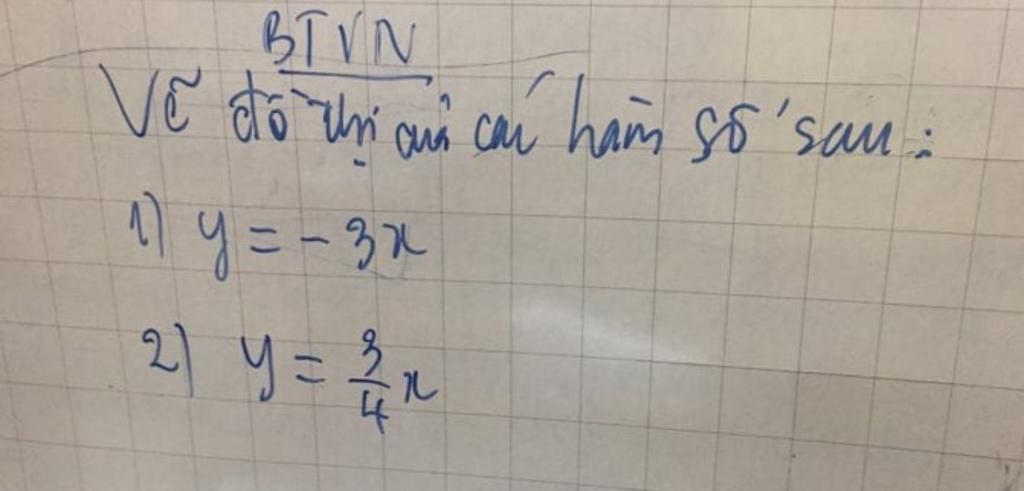 BTVN
Vẽ đồ thị của các hàm số sau:
1) y = - 3x
2) y = 3/4 x